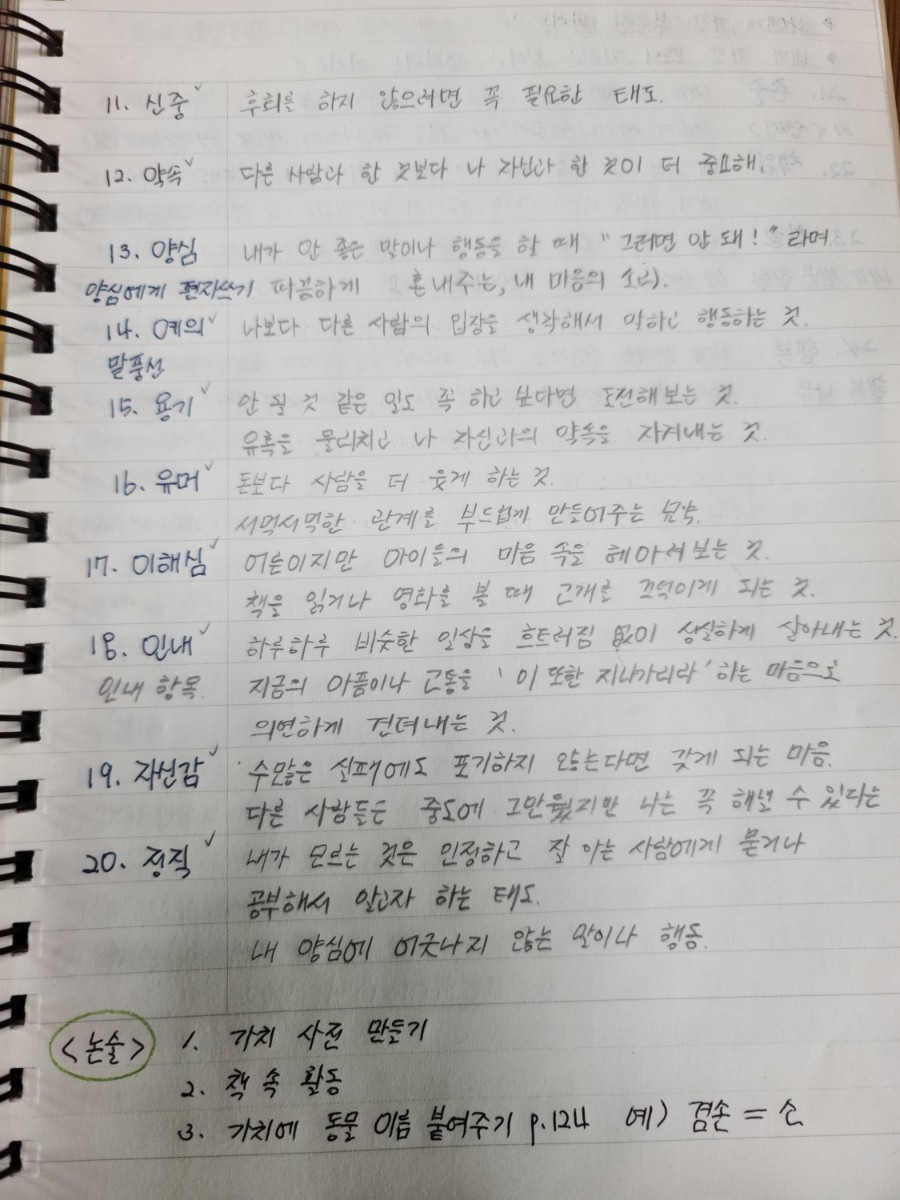 11. 신중✓ 후회를 하지 않으려면 꼭 필요한 태도.
12. 약속✓ 다른 사람과 한 것보다 나 자신과 한 것이 더 중요해.
13. 양심✓ 내가 안 좋은 말이나 행동을 할 때 "그러면 안 돼!" 라며
양심에게 편지쓰기 따끔하게 혼내주는, 내 마음의 소리.
14. 예의✓ 나보다 다른 사람의 입장을 생각해서 말하고 행동하는 것.
말풍선
15. 용기✓ 안 될 것 같은 일도 꼭 하고 싶다면 도전해보는 것.
유혹을 물리치고 나 자신과의 약속을 지켜내는 것.
16. 유머✓ 돈보다 사람을 더 웃게 하는 것.
서먹서먹한 관계를 부드럽게 만들어주는 묘약.
17. 이해심✓ 어른이지만 아이들의 마음 속을 헤아려보는 것.
책을 읽거나 영화를 볼 때 고개를 끄덕이게 되는 것.
18. 인내✓ 하루하루 비슷한 일상을 흐트러짐 없이 성실하게 살아내는 것.
인내 항목 지금의 아픔이나 고통을 '이 또한 지나가리라' 하는 마음으로
의연하게 견뎌내는 것.
19. 자신감✓ 수많은 실패에도 포기하지 않는다면 갖게 되는 마음.
다른 사람들은 중도에 그만뒀지만 나는 꼭 해낼 수 있다는
20. 정직✓ 내가 모르는 것은 인정하고 잘 아는 사람에게 묻거나
공부해서 알고자 하는 태도.
내 양심에 어긋나지 않는 말이나 행동.
<논술> 1. 가치 사전 만들기
2. 책 속 활동
3. 가치에 동물 이름 붙여주기 p.124 예) 겸손 = 소